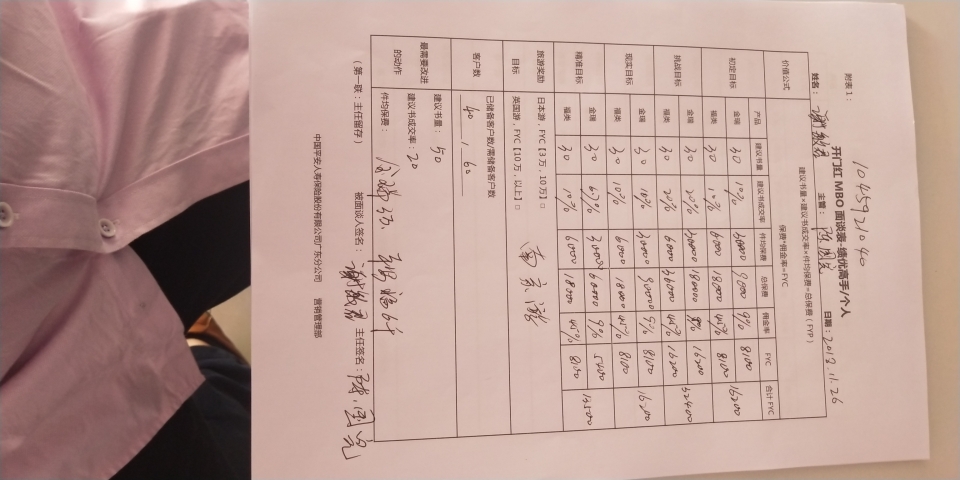 1045921040
附表1：
开门红 MBO 面谈表-绩优高手/个人
姓名： 主管： 日期：2018.11.26
价值公式 建议书量×建议书成交率×件均保费=总保费（FYP）
保费*佣金率=FYC
产品 建议书量 建议书成交率 件均保费 总保费 佣金率 FYC 合计FYC
初定目标 金瑞 30 10% 30000 90000 9% 8100 16200
福类 30 10% 6000 18000 45% 8100
挑战目标 金瑞 30 20% 30000 180000 9% 16200
福类 30 20% 6000 36000 45% 16200
现实目标 金瑞 30 10% 30000 90000 9% 8100 16200
福类 30 10% 6000 18000 45% 8100
精准目标 金瑞 30 9% 5400 13500
福类 30 10% 6000 18000 45% 8100
旅游奖励 日本游，FYC【3万，10万】□
目标 英国游，FYC【10万，以上】□
客户数 已储备客户数/需储备客户数
40 , 60
最需要改进 建议书量：50
的动作 建议书成交率：20
件均保费：
被面谈人签名： 主任签名：
（第一联：主任留存）
中国平安人寿保险股份有限公司广东分公司 营销管理部